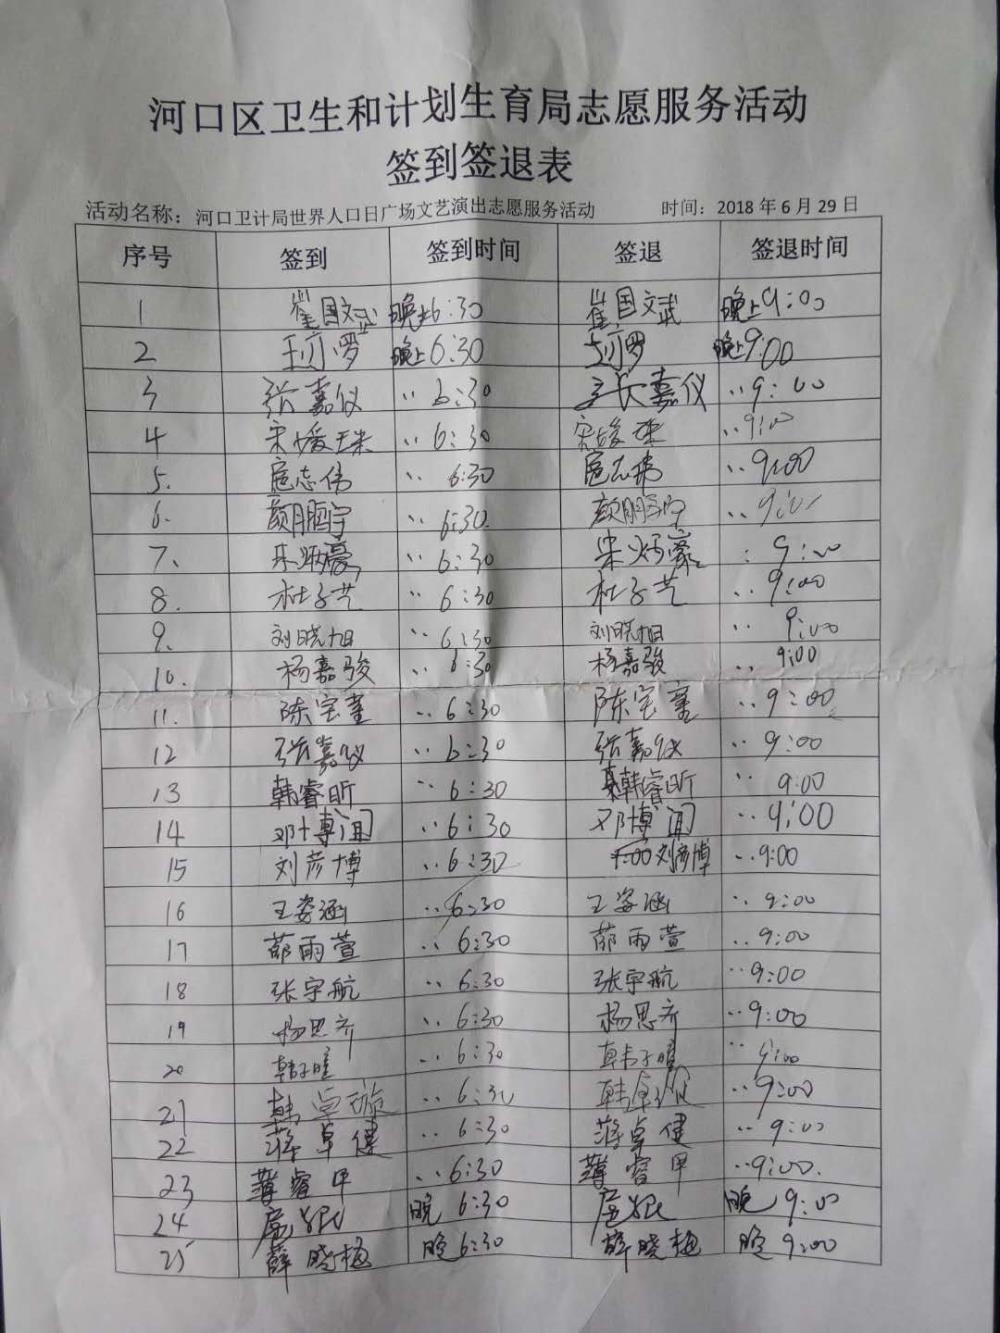 河口区卫生和计划生育局志愿服务活动
签到签退表
活动名称：河口卫计局世界人口日广场文艺演出志愿服务活动 时间：2018 年 6 月 29 日
序号 签到 签到时间 签退 签退时间
1 崔国文武 晚上6:30 崔国文武 晚上9:00
2 晚上6:30 晚上9:00
3 张嘉仪 〃 6:30 张嘉仪 〃 9:00
4 宋媛珠 〃 6:30 〃 9:00
5. 扈志伟 〃 6:30 扈志伟 〃 9:00
6. 颜鹏宇 〃 6:30. 颜鹏宇 〃 9:00
7、 朱炳豪 〃 6:30 朱炳豪 : 9:00
8. 杜子艺 〃 6:30 杜子艺 〃 9:00
9. 刘晓旭 〃 6:30 刘晓旭 〃 9:00
10. 杨嘉骏 〃 6:30 杨嘉骏 〃 9:00
11. 陈宝堇 〃 6:30 陈宝堇 〃 9:00
12 张嘉仪 〃 6:30 张嘉仪 〃 9:00
13 韩睿昕 〃 6:30 韩睿昕 〃 9:00
14 邓博闻 〃 6:30 邓博闻 〃 9:00
15 刘彦博 〃 6:30 刘彦博 〃 9:00
16 王姿涵 〃 6:30 王姿涵 〃 9:00
17 邵雨萱 〃 6:30 邵雨萱 〃 9:00
18 张宇航 〃 6:30 张宇航 〃 9:00
19 杨思齐 〃 6:30 杨思齐 〃 9:00
20 韩子瞳 〃 6:30 韩子瞳 〃 9:00
21 韩卓璇 〃 6:30 韩卓璇 〃 9:00
22 蒋卓健 〃 6:30 蒋卓健 〃 9:00
23 薄睿甲 〃 6:30 薄睿甲 〃 9:00.
24 晚 6:30 晚 9:00
25 薛晓梅 晚 6:30 薛晓梅 晚 9:00